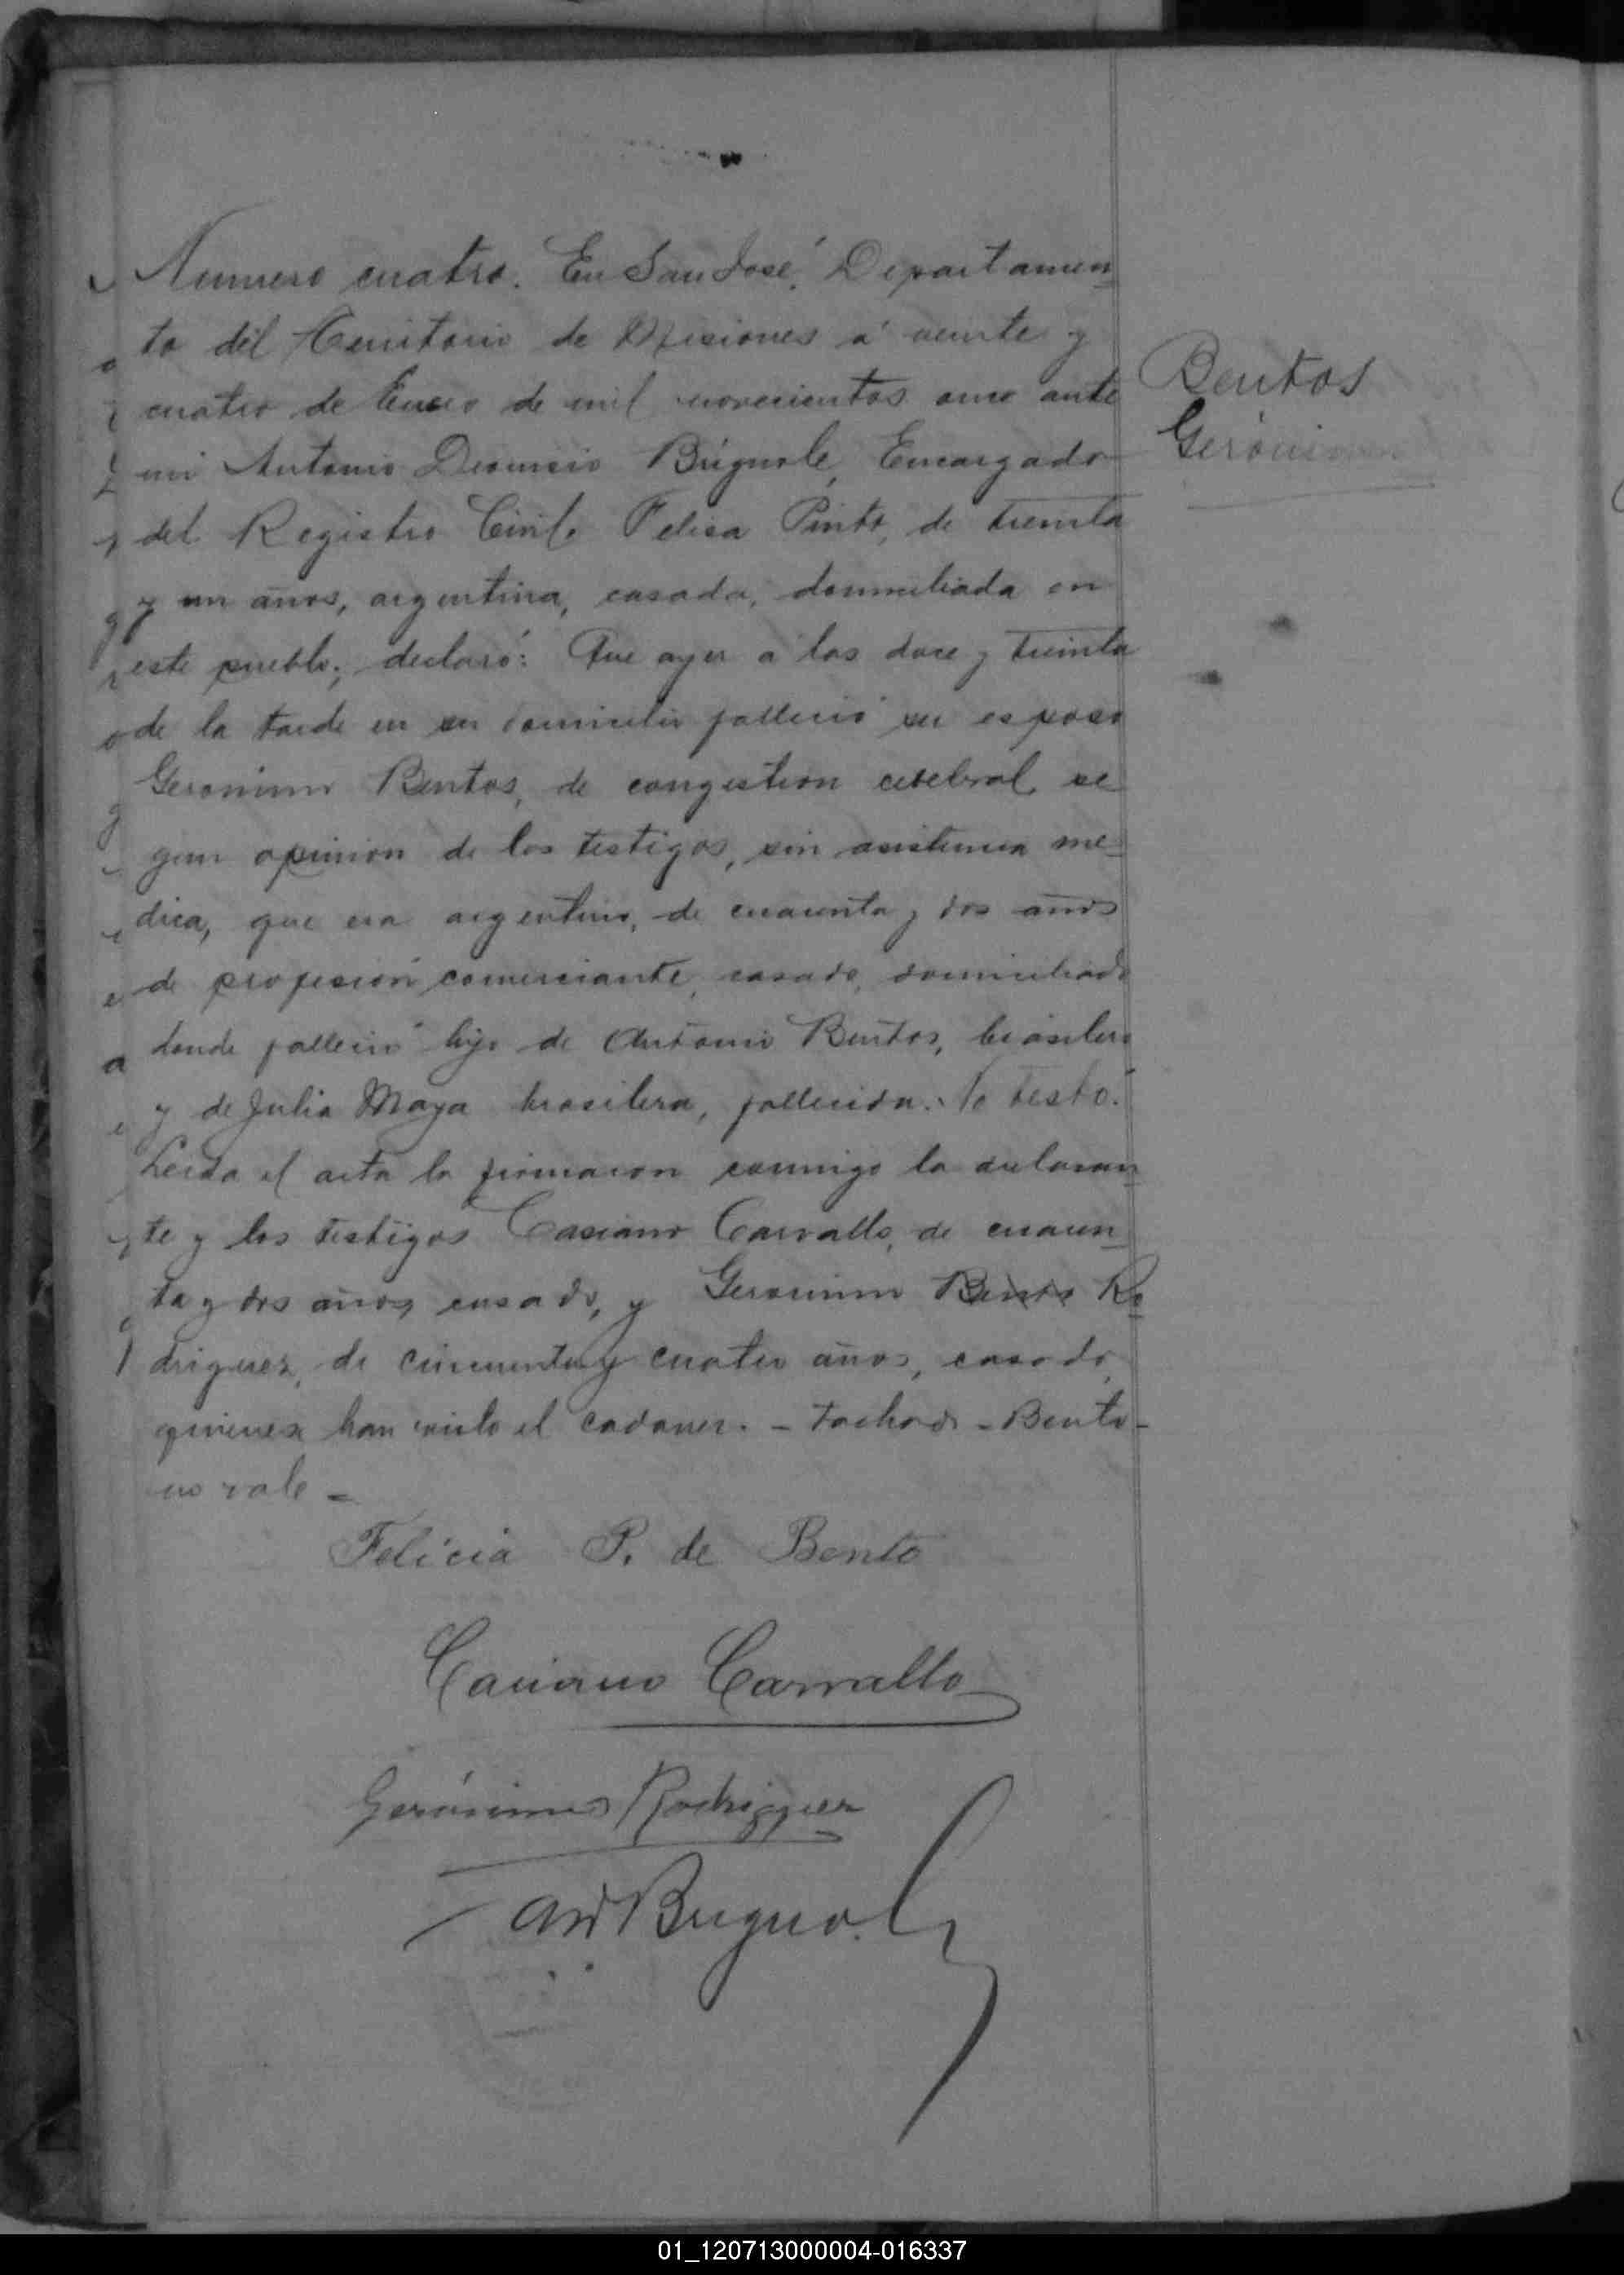 Numero cuatro. En San José, Departamen-
to del Territorio de Misiones á veinte y
cuatro de Enero de mil novecientos once ante
mi Antonio Dionicio Brignole, Encargado
del Registro Civil. Felisa Pinto, de treinta
y un años, argentina, casada, domiciliada en
este pueblo; declaró: Que ayer a las doce y treinta
de la tarde en su domicilio falleció su esposo
Geronimo Bentos, de congestion celebral se-
gun opinion de los testigos, sin asistencia me-
dica, que era argentino, de cuarenta y dos años
de profesión comerciante, casado, domiciliado
donde falleció hijo de Antonio Bentos, brasilero
y de Julia Maya brasilera, fallecida. No testó.
Leida el acta la firmaron conmigo la declaran-
te y los testigos Casiano Carvallo, de cuaren-
ta y dos años, casado, y Geronimo Bento Ro-
driguez, de cincuenta y cuatro años, casado,
quienes han visto el cadaver. - Tachado - Bento -
no vale =
Felicia P. de Bento
Casiano Carvallo
Gerónimo Rodriguez
Brignole
Bentos
Gerónimo
01_120713000004-016337